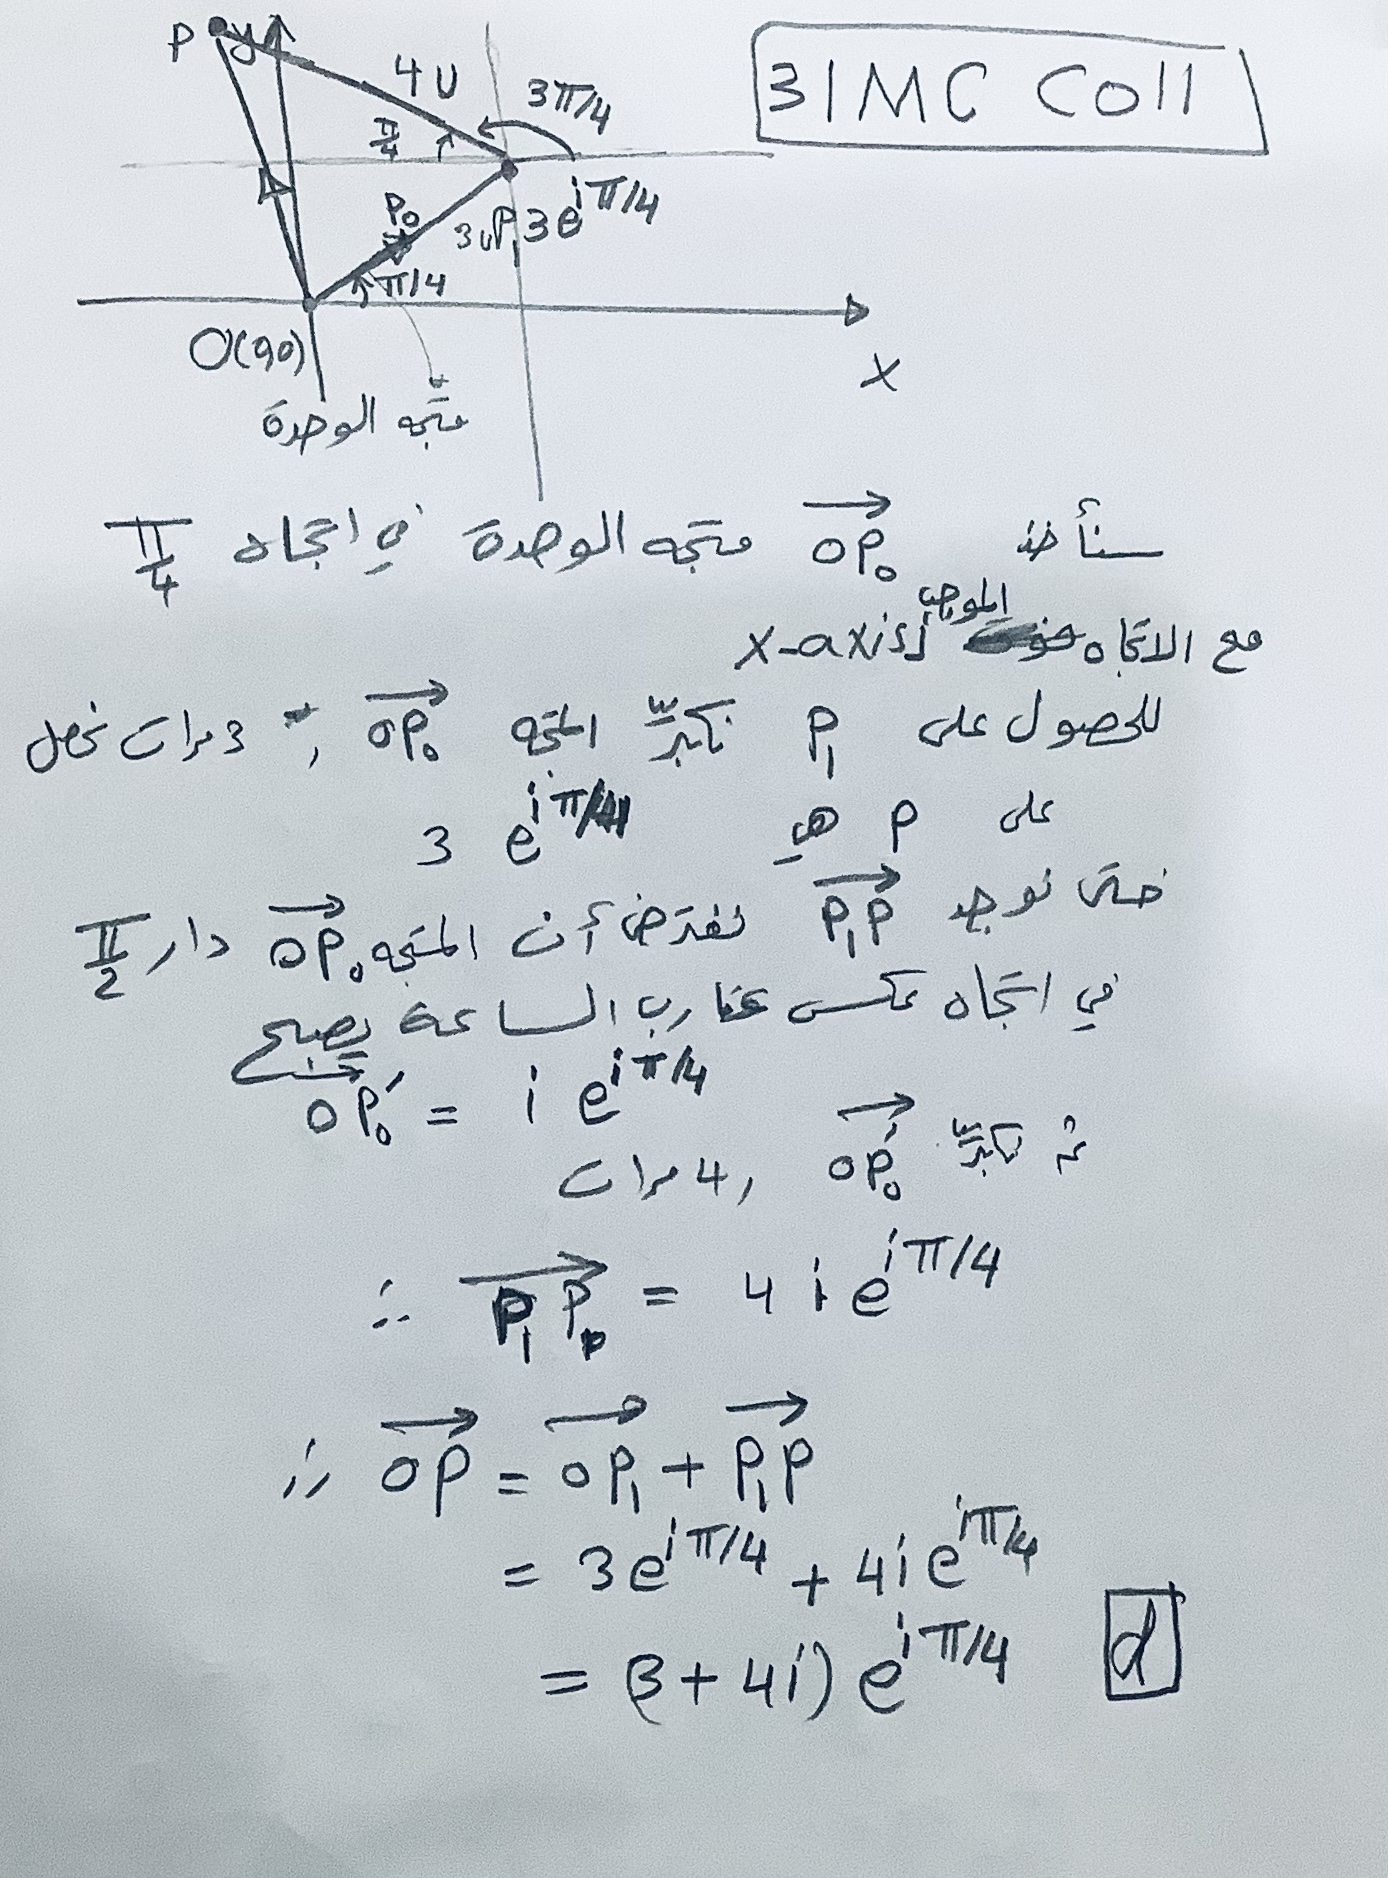 31MC Coll
P
y
4U
3π/4
π/4
P₀
3u
P₁
3e^{iπ/4}
π/4
O(0,0)
X
متجه الوحدة
سنأخذ OP₀ متجه الوحدة في اتجاه π/4
مع الاتجاه الموجب لـ x-axis
للحصول على P₁ نكبّر المتجه OP₀ 3 مرات نحصل
على P هي 3 e^{iπ/4}
حتى نوجد P₁P نفترض أن المتجه OP₀ دار π/2
في اتجاه عكس عقارب الساعة يصبح
OP₀′ = i e^{iπ/4}
ثم نكبّر OP₀′ 4 مرات
∴ P₁P = 4 i e^{iπ/4}
∴ OP = OP₁ + P₁P
= 3e^{iπ/4} + 4i e^{iπ/4}
= (3+4i) e^{iπ/4}
d